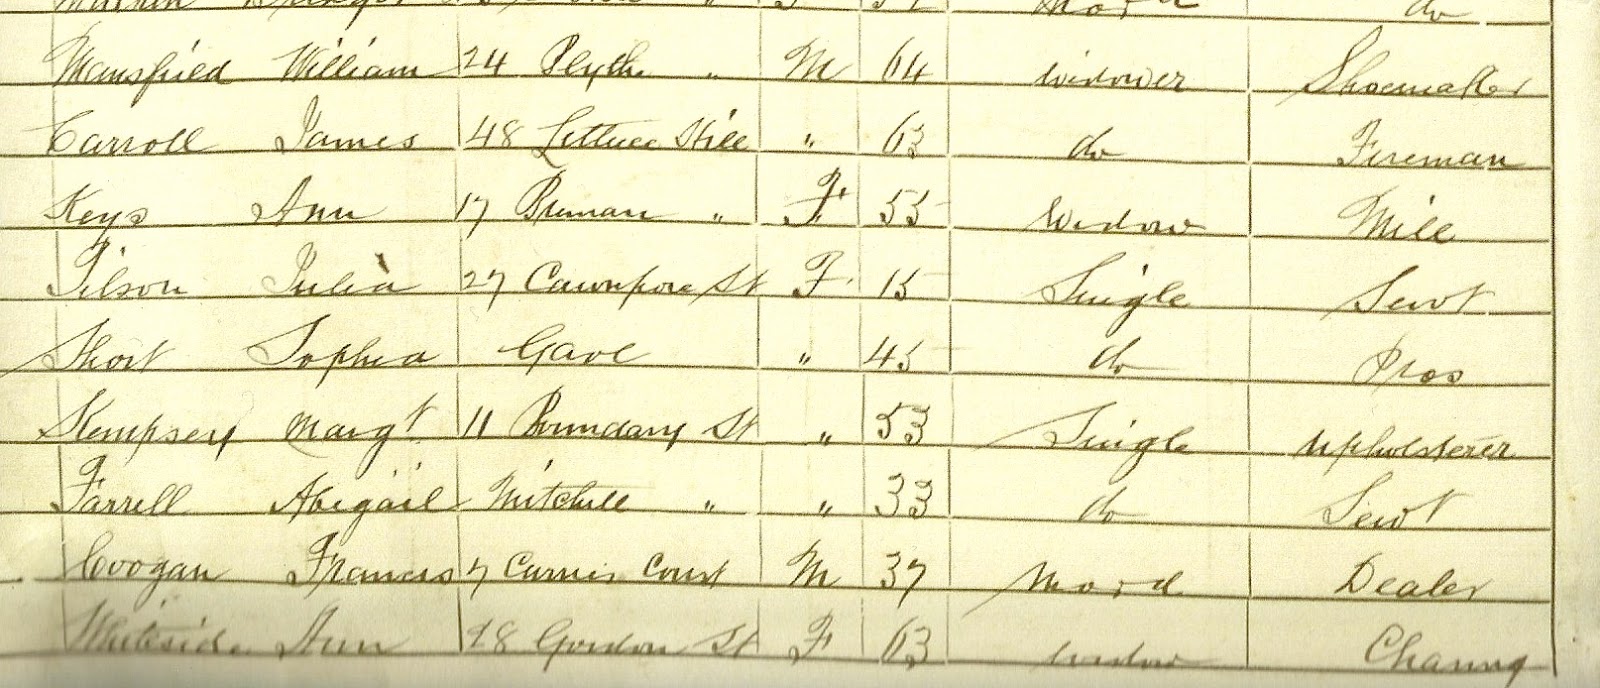 Mard do
Mansfield William 24 Blythe " M 64 widower Shoemaker
Carroll James 48 Lettuce Hill " 63 do Fireman
Keys Ann 17 Brennan " F 55 Widow Mill
Tilson Julia 27 Cawnpore St F 15 Single Servt
Short Sophia Gaol " 45 do Pros
Kempsey Margt 11 Boundary St " 53 Single Upholsterer
Farrell Abigail Mitchell " " 33 do Servt
Coogan Francis 7 Court M 37 Mard Dealer
Whiteside Ann 28 Gordon St F 63 widow Charing